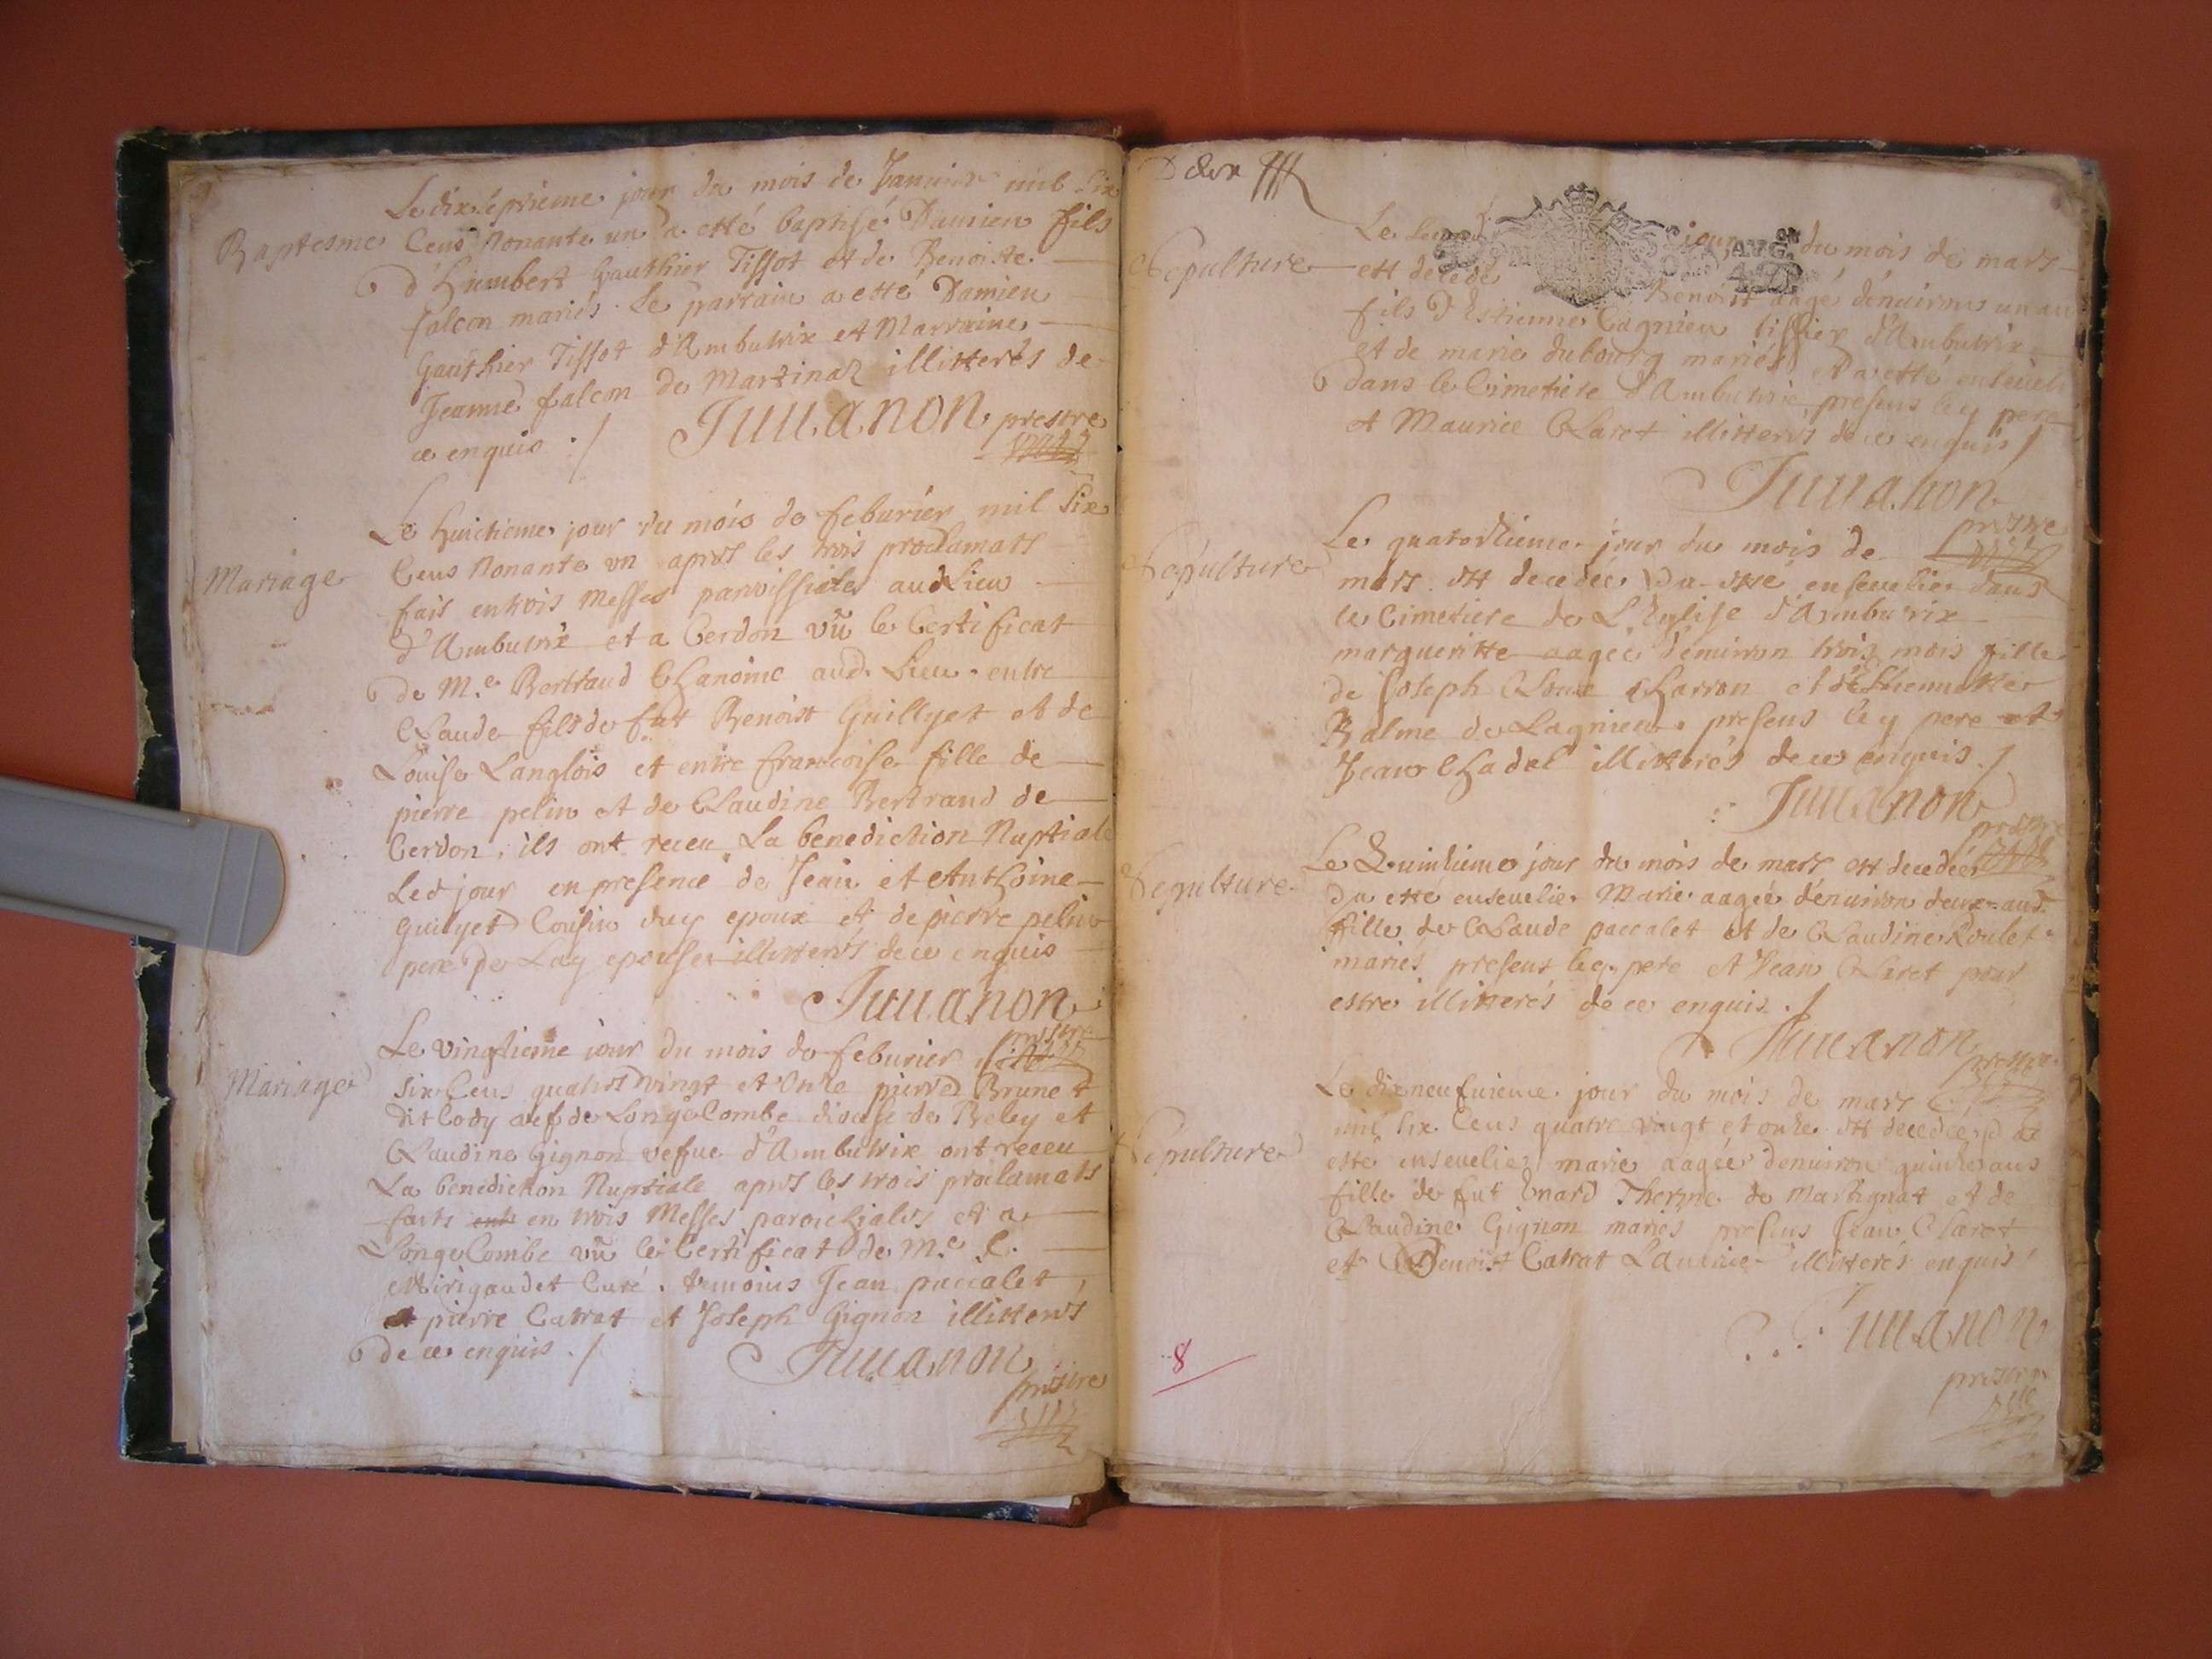 Le dixseptieme jour du mois de Januier mil Six
Baptesme Cens Nonante un a esté baptisé Damien fils
d'Humbert Gauthier Tissot et de Benoiste
falcon mariés. Le parrain a esté Damien
Gauthier Tissot d'Ambutrix et Marraine
Jeanne falcon de Martinaz illitterés de
ce enquis ./ Juuanon prestre
Le huictieme jour du mois de feburier mil Six
Mariage Cens Nonante un apres les trois proclamats
fais en trois Messes parroissiales aud Lieu
d'Ambutrix et a Cerdon vû le Certificat
de M.e Bertrand Chanoine aud. Lieu. entre
Claude fils de fut Benoist Guillyet et de
Louise Langlois et entre francoise fille de
pierre pelin et de Claudine Bertrand de
Cerdon, ils ont receu La benediction Nuptiale
Led jour en presence de Jean et Anthoine
Guilyet Cousin duy epoux et de pierre pelin
pere de Lay epouse illitterés de ce enquis
Juuanon
prestre
Le vingtieme jour du mois de feburier
Mariage Six Cens quatre vingt et Onze pierre Brunet
dit Cody de Longecombe diocese de Beley et
Claudine Gignon vefue d'Ambutrix ont receu
La benediction Nuptiale apres les trois proclamats
faits en trois Messes paroichiales et a
Longecombe vû le Certificat de M.e
Mirigaudet Curé. temoins Jean paccalet,
pierre Catrat et Joseph Gignon illitterés
de ce enquis ./ Juuanon
prestre
Deux
Le jour du mois de mars
Sepulture est decedé Benoist aagé d'enuiron un an
fils d'Estienne Cagnieu tissier d'Ambutrix
et de marie dubourg mariés et a esté enseueli
dans le Cimetiere d'Ambutrix presens ley pere
et Maurice Claret illitterés de ce enquis /
Juuanon
prestre
Le quatorzieme jour du mois de
Sepulture mars est decedée & a esté enseuelie dans
le Cimetiere de L'Eglise d'Ambutrix
margueritte aagée d'enuiron trois mois fille
de Joseph Charron et d'Estiennette
Balme de Lagnieu. presens ley pere et
Jean Chadel illitterés de ce enquis ./
Juuanon
prestre
Le Quinzieme jour du mois de mars est decedée
Sepulture & a esté enseuelie Marie aagée d'enuiron deux ans
fille de Claude paccalet et de Claudine Roulet
mariés presens ley pere et Jean Claret pour
estre illitterés de ce enquis ./
Juuanon
prestre
Le dixneufuieme jour du mois de mars
mil six Cens quatre vingt et onze est decedée & a
Sepulture esté enseuelie marie aagée d'enuiron quinze ans
fille de fut Enard Therme de Martignat et de
Claudine Gignon mariés presens Jean Claret
et Benoist Catrat illitterés enquis
Juuanon
prestre
8